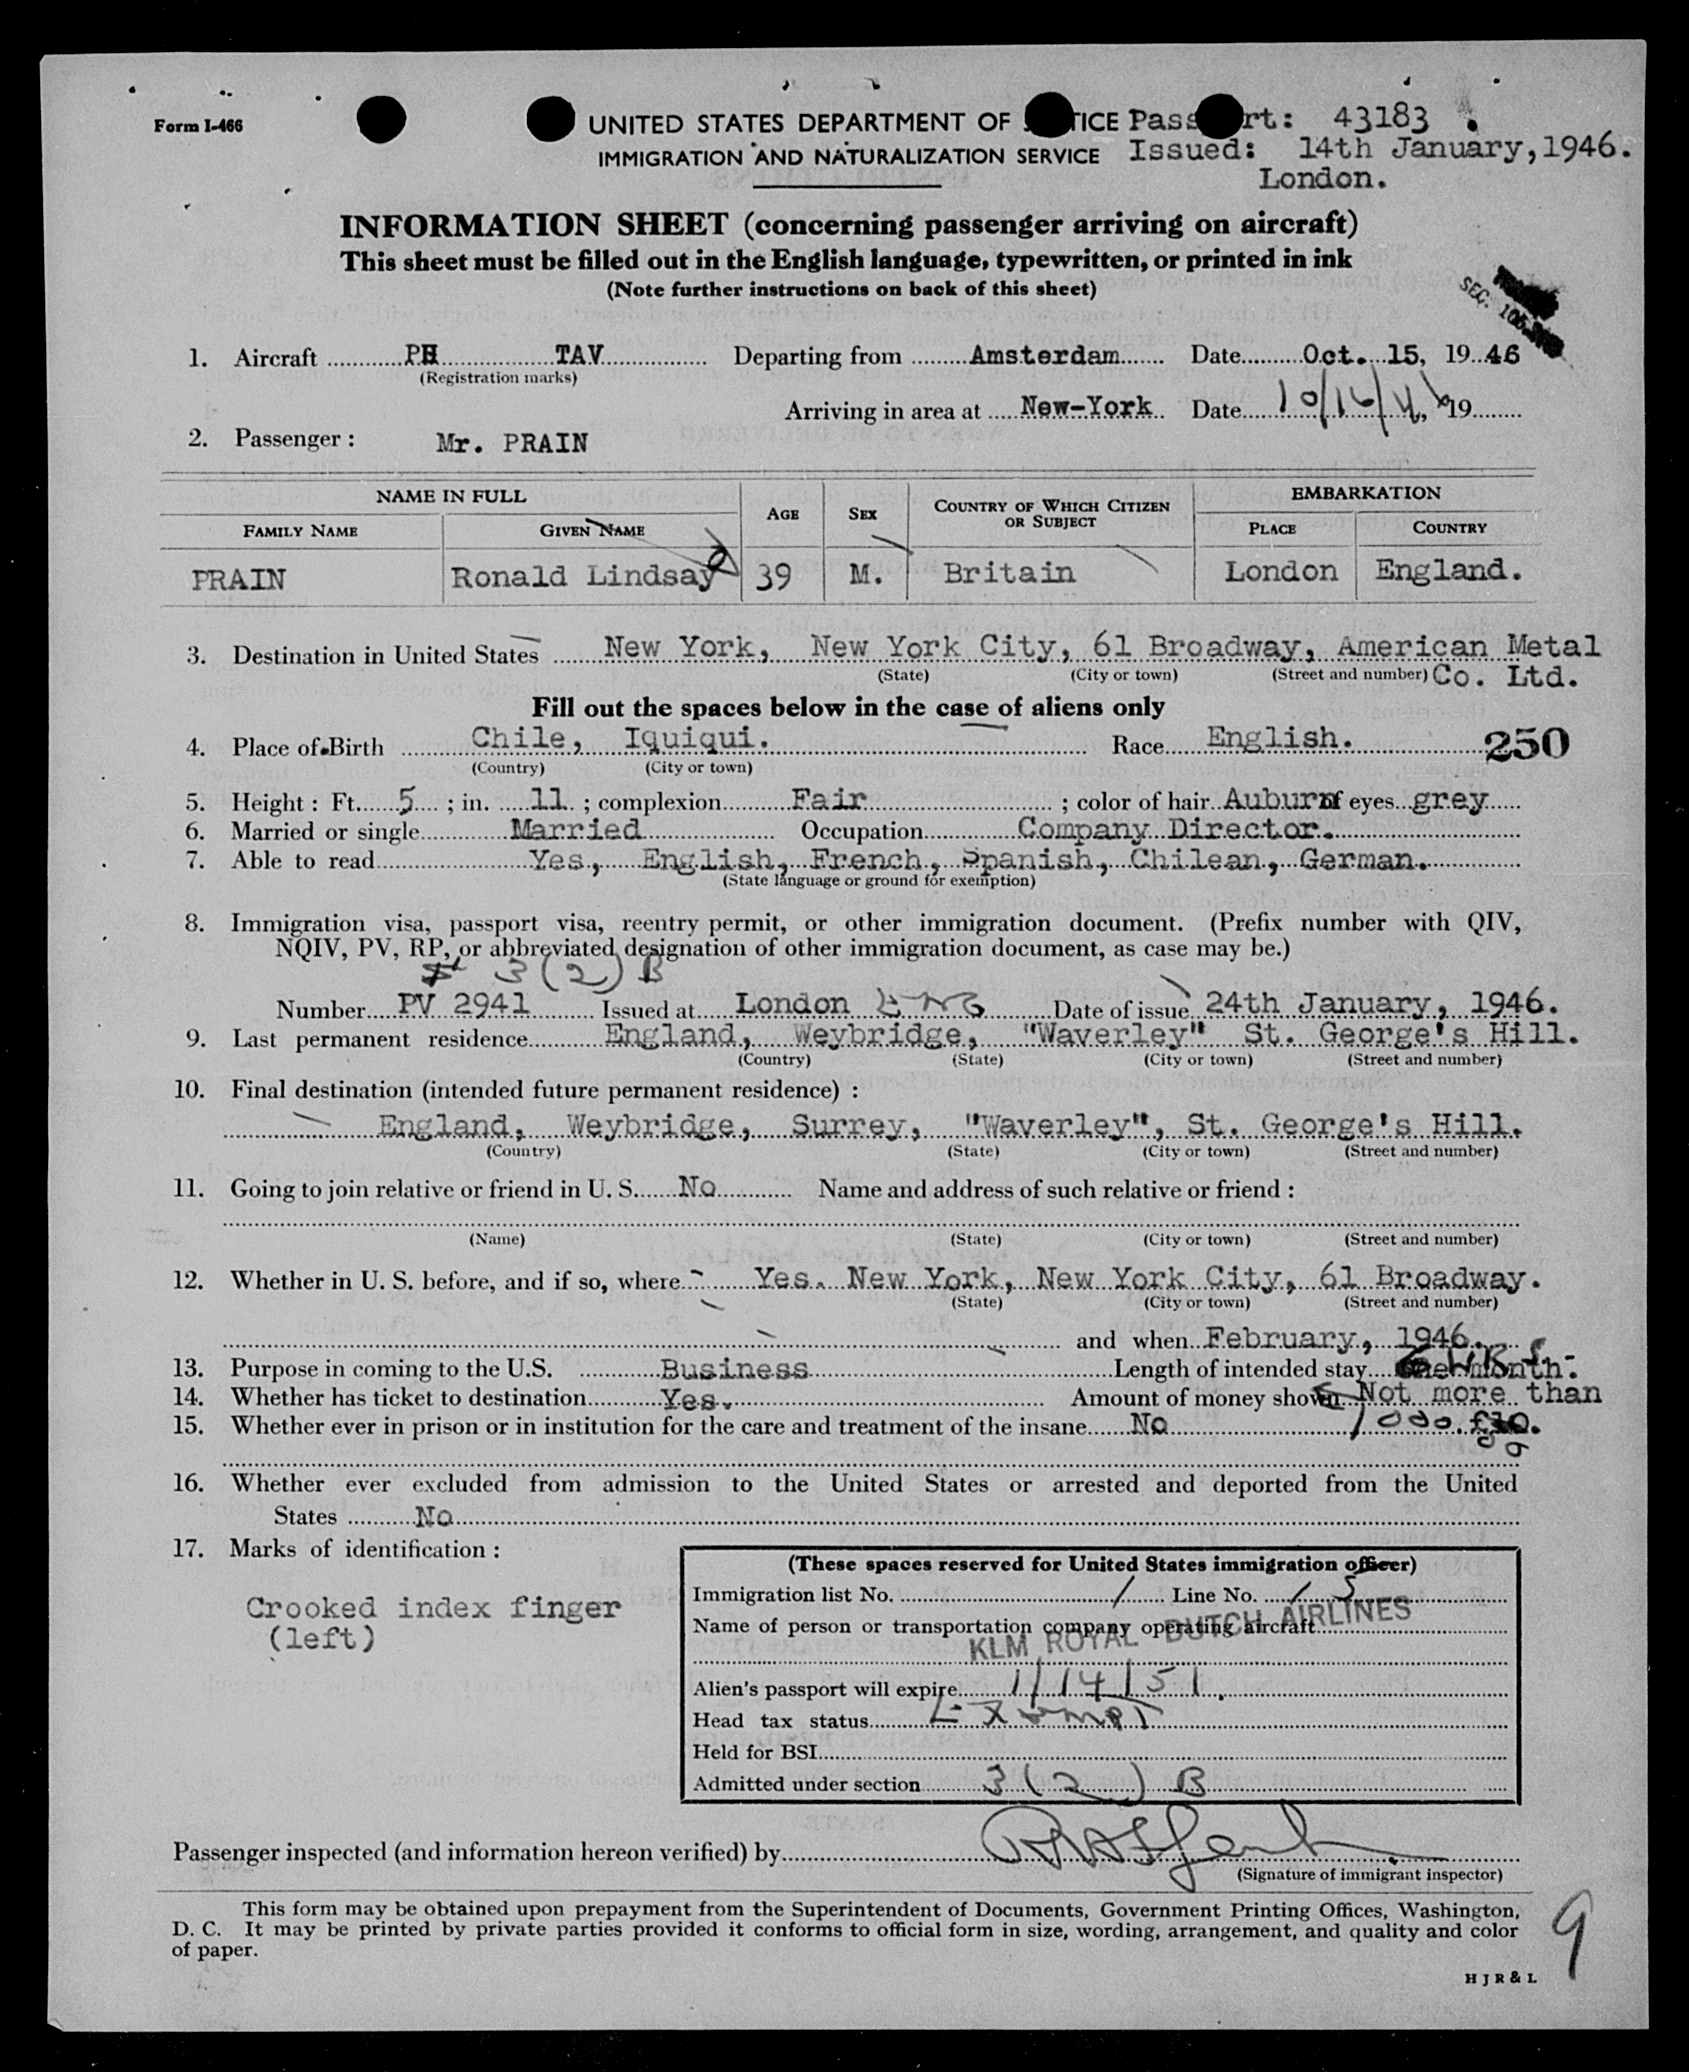 Form I-466
UNITED STATES DEPARTMENT OF TICE Pass rt: 43183
IMMIGRATION AND NATURALIZATION SERVICE Issued: 14th January, 1946.
London.
INFORMATION SHEET (concerning passenger arriving on aircraft)
This sheet must be filled out in the English language, typewritten, or printed in ink
(Note further instructions on back of this sheet)
SEC.
1. Aircraft PH TAV Departing from Amsterdam Date Oct. 15, 19 46
(Registration marks)
Arriving in area at New-York Date 10/16/46, 19
2. Passenger : Mr. PRAIN
NAME IN FULL AGE SEX COUNTRY OF WHICH CITIZEN OR SUBJECT EMBARKATION
FAMILY NAME GIVEN NAME PLACE COUNTRY
PRAIN Ronald Lindsay 39 M. Britain London England.
3. Destination in United States New York, New York City, 61 Broadway, American Metal
(State) (City or town) (Street and number) Co. Ltd.
Fill out the spaces below in the case of aliens only
4. Place of Birth Chile, Iquiqui. Race English. 250
(Country) (City or town)
5. Height : Ft. 5 ; in. 11 ; complexion Fair ; color of hair Auburn of eyes grey
6. Married or single Married Occupation Company Director.
7. Able to read Yes, English, French, Spanish, Chilean, German.
(State language or ground for exemption)
8. Immigration visa, passport visa, reentry permit, or other immigration document. (Prefix number with QIV,
NQIV, PV, RP, or abbreviated designation of other immigration document, as case may be.)
3 (2) B
Number PV 2941 Issued at London ENG Date of issue 24th January, 1946.
9. Last permanent residence England, Weybridge, "Waverley" St. George's Hill.
(Country) (State) (City or town) (Street and number)
10. Final destination (intended future permanent residence) :
England, Weybridge, Surrey, "Waverley", St. George's Hill.
(Country) (State) (City or town) (Street and number)
11. Going to join relative or friend in U. S. No Name and address of such relative or friend :
(Name) (State) (City or town) (Street and number)
12. Whether in U. S. before, and if so, where Yes. New York, New York City, 61 Broadway.
(State) (City or town) (Street and number)
and when February, 1946.
13. Purpose in coming to the U.S. Business Length of intended stay One month.
14. Whether has ticket to destination Yes. Amount of money shown Not more than
15. Whether ever in prison or in institution for the care and treatment of the insane No 1000. £10.
16. Whether ever excluded from admission to the United States or arrested and deported from the United
States No
17. Marks of identification :
Crooked index finger
(left)
(These spaces reserved for United States immigration officer)
Immigration list No. 1 Line No. 15
Name of person or transportation company operating aircraft
KLM ROYAL DUTCH AIRLINES
Alien's passport will expire 1/14/51.
Head tax status Exempt
Held for BSI
Admitted under section 3 (2) B
Passenger inspected (and information hereon verified) by
(Signature of immigrant inspector)
This form may be obtained upon prepayment from the Superintendent of Documents, Government Printing Offices, Washington,
D. C. It may be printed by private parties provided it conforms to official form in size, wording, arrangement, and quality and color
of paper.
9
H J R & L